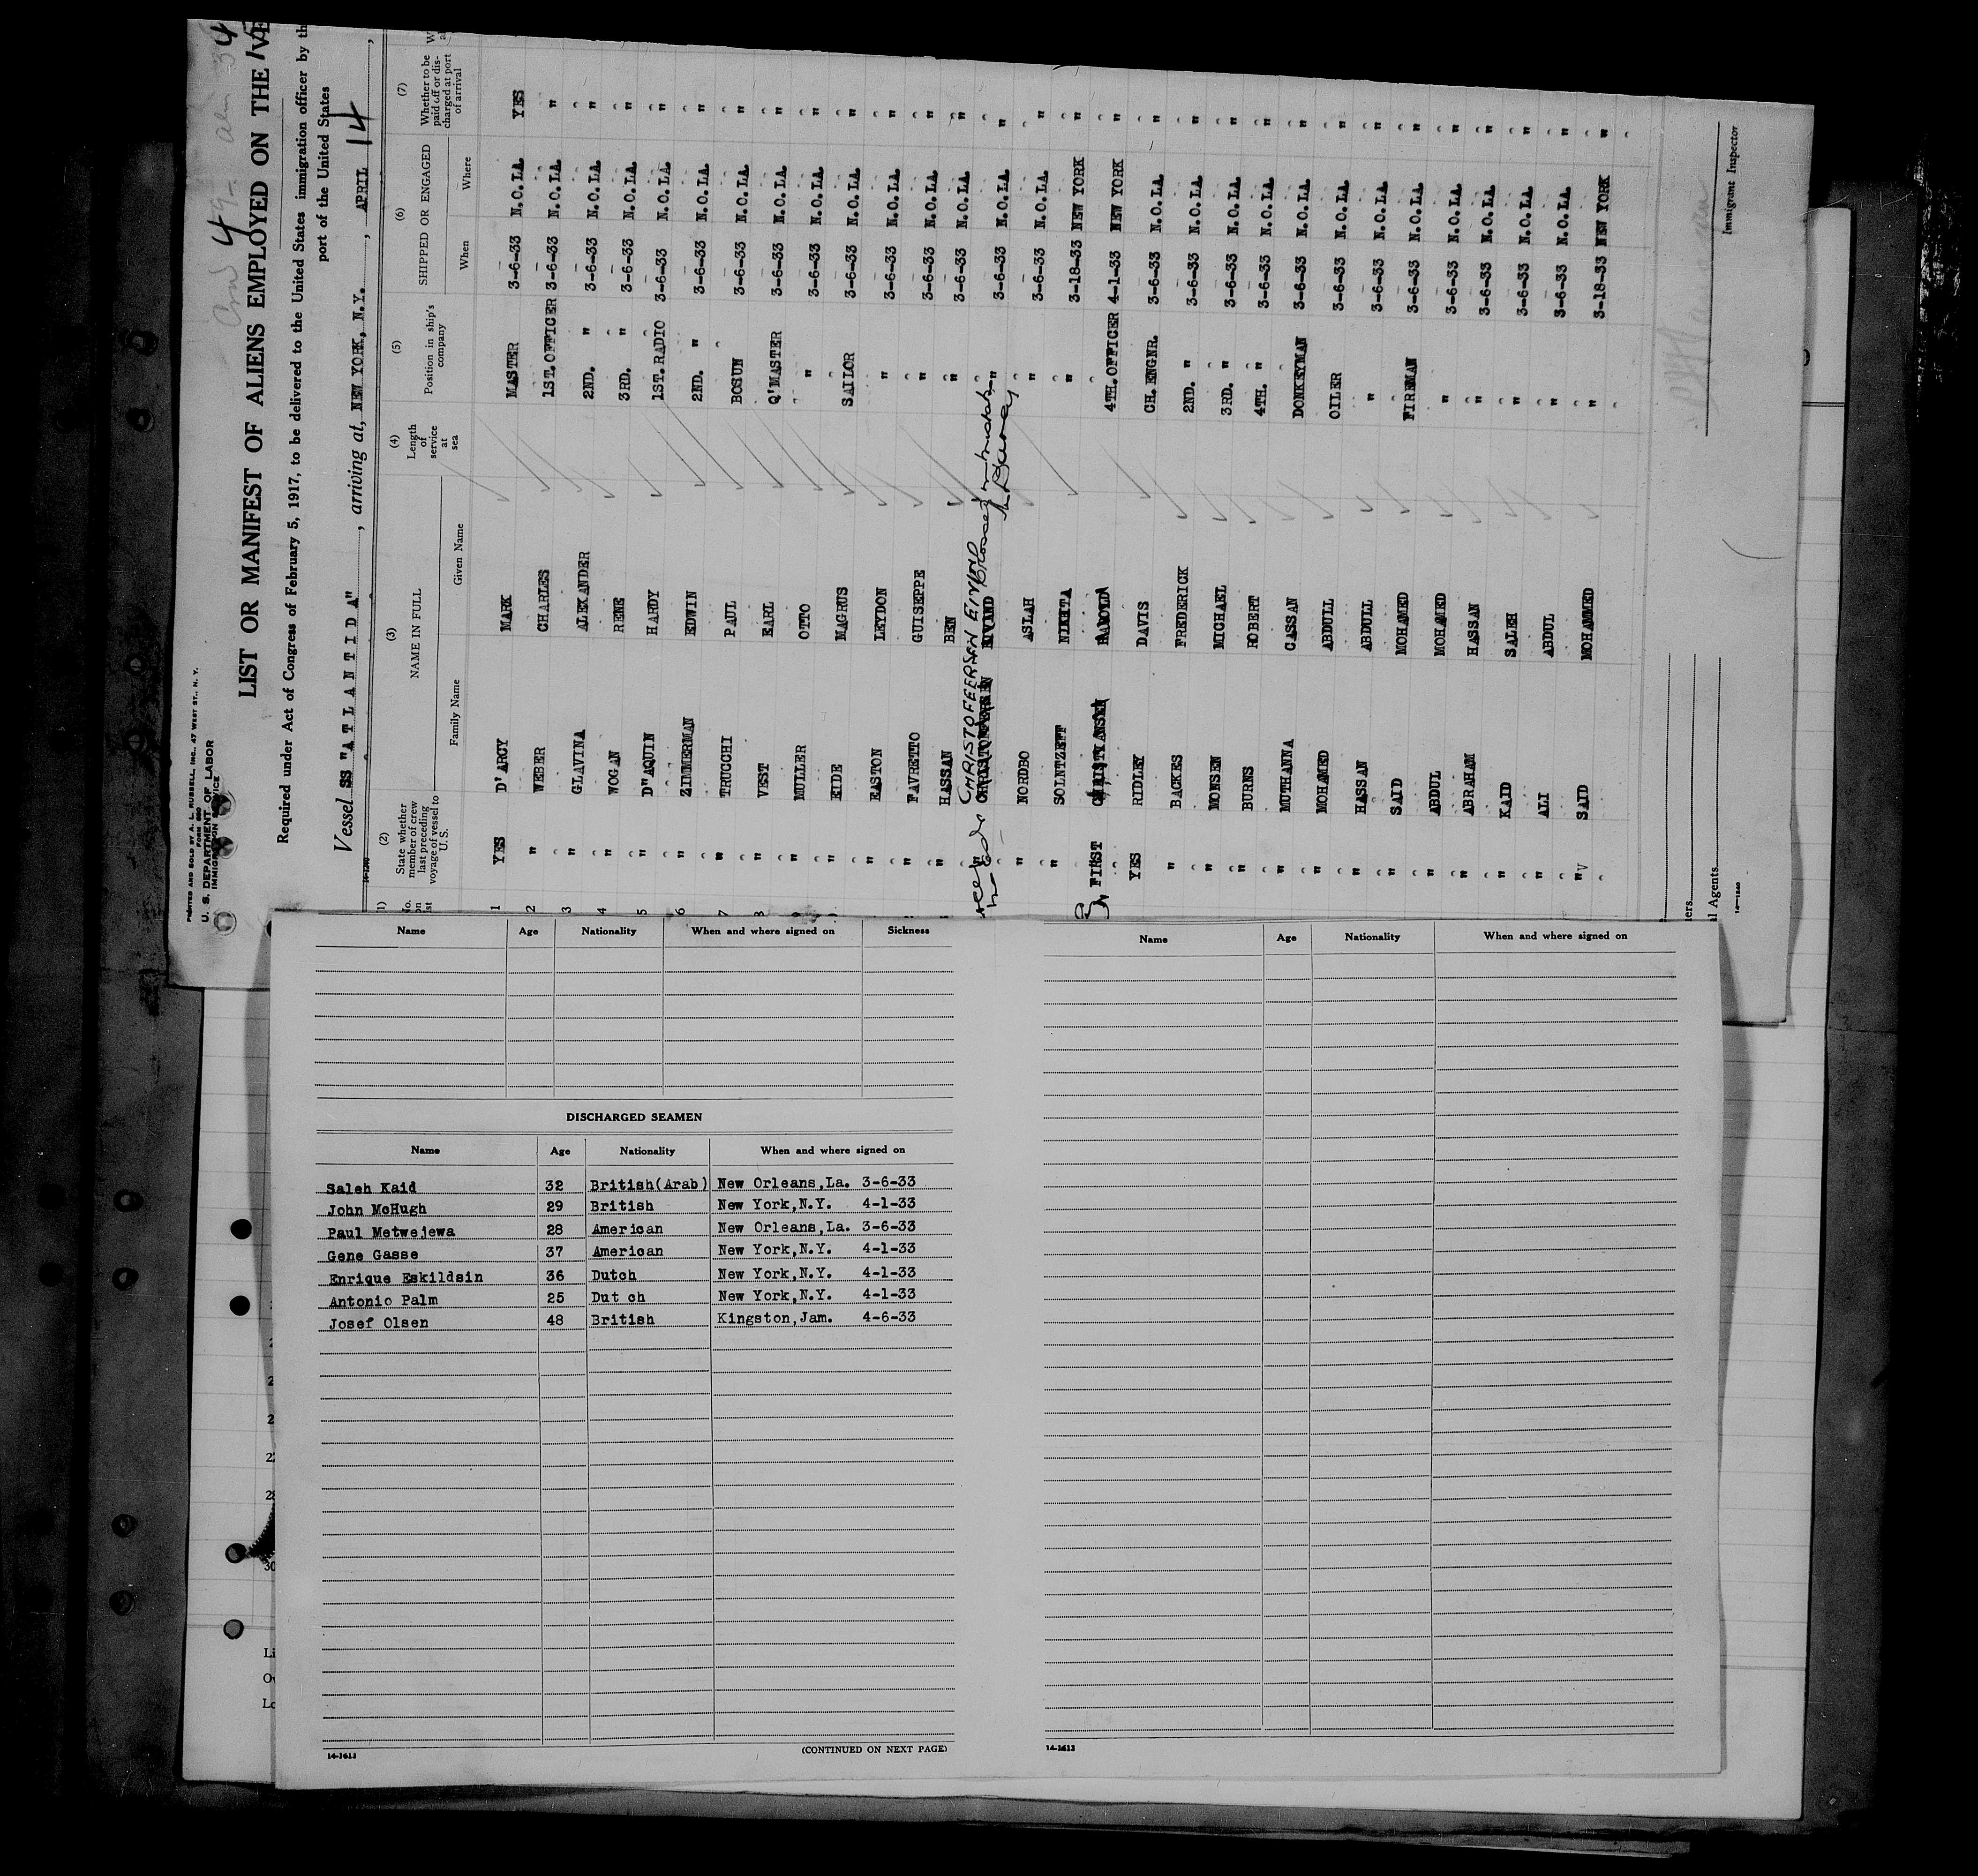 PRINTED AND SOLD BY A. L. RUSSELL, INC., 47 WEST ST., N. Y.
FORM 680
U. S. DEPARTMENT OF LABOR
IMMIGRATION SERVICE
LIST OR MANIFEST OF ALIENS EMPLOYED ON THE
Required under Act of Congress of February 5, 1917, to be delivered to the United States immigration officer by th
port of the United States
Vessel SS "ATLANTIDA", arriving at, NEW YORK, N.Y., APRIL 14,
(2) (3) (4) (5) (6) (7)
State whether member of crew last preceding voyage of vessel to U.S. NAME IN FULL Length of service at sea Position in ship's company SHIPPED OR ENGAGED Whether to be paid off or discharged at port of arrival
Family Name Given Name When Where
1 YES D'ARGY MARK MASTER 3-6-33 N.O.LA. YES
2 " WEBER CHARLES 1ST.OFFICER 3-6-33 N.O.LA. "
3 " GLAVINA ALEXANDER 2ND. " 3-6-33 N.O.LA. "
4 " WOGAN RENE 3RD. " 3-6-33 N.O.LA. "
5 " D"AQUIN HARDY 1ST.RADIO 3-6-33 N.O.LA. "
6 " ZIMMERMAN EDWIN 2ND. " 3-6-33 N.O.LA. "
7 " TRUCCHI PAUL BOSUN 3-6-33 N.O.LA. "
8 " VEST EARL Q'MASTER 3-6-33 N.O.LA. "
" MULLER OTTO " 3-6-33 N.O.LA. "
" EIDE MAGRUS SAILOR 3-6-33 N.O.LA. "
" EASTON LEYDON " 3-6-33 N.O.LA. "
" FAVRETTO GUISEPPE " 3-6-33 N.O.LA. "
" HASSAN BEN " 3-6-33 N.O.LA. "
CHRISTOFFERSEN EIVIND
" CHRISTOFFERSEN EIVIND " 3-6-33 N.O.LA. "
" NORDBO ASLAH " 3-6-33 N.O.LA. "
" SOLNTZEFF NIKHITA " 3-18-33 NEW YORK "
FIRST CHRISTIANSEN 4TH.OFFICER 4-1-33 NEW YORK "
YES RIDLEY DAVIS CH.ENGNR. 3-6-33 N.O.LA. "
" BACKES FREDERICK 2ND. " 3-6-33 N.O.LA. "
" MONSEN MICHAEL 3RD. " 3-6-33 N.O.LA. "
" BURNS ROBERT 4TH. " 3-6-33 N.O.LA. "
" MUTHANNA CASSAN DONKEYMAN 3-6-33 N.O.LA. "
" MOHAMED ABDULL OILER 3-6-33 N.O.LA. "
" HASSAN ABDULL " 3-6-33 N.O.LA. "
" SAID MOHAMED FIREMAN 3-6-33 N.O.LA. "
" ABDUL MOHAMED " 3-6-33 N.O.LA. "
" ABRAHAM HASSAN " 3-6-33 N.O.LA. "
" KAID SALEH " 3-6-33 N.O.LA. "
" ALI ABDUL " 3-6-33 N.O.LA. "
" SAID MOHAMMED " 3-18-33 NEW YORK "
Immigrant Inspector
l Agents
Name Age Nationality When and where signed on Sickness
DISCHARGED SEAMEN
Name Age Nationality When and where signed on
Saleh Kaid 32 British(Arab) New Orleans,La. 3-6-33
John McHugh 29 British New York,N.Y. 4-1-33
Paul Metwejewa 28 American New Orleans,La. 3-6-33
Gene Gasse 37 American New York,N.Y. 4-1-33
Enrique Eskildsin 36 Dutch New York,N.Y. 4-1-33
Antonio Palm 25 Dut ch New York,N.Y. 4-1-33
Josef Olsen 48 British Kingston,Jam. 4-6-33
14-1613 (CONTINUED ON NEXT PAGE)
Name Age Nationality When and where signed on
14-1613